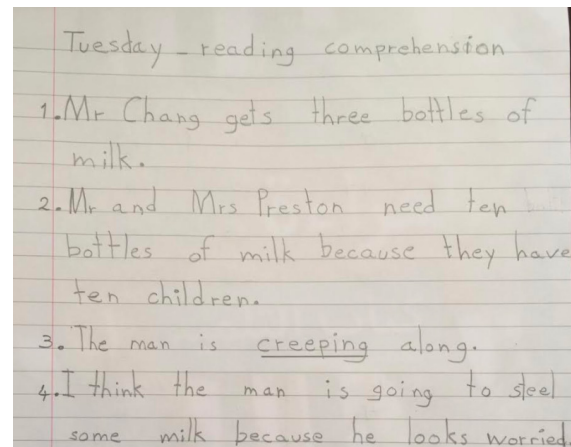 Tuesday - reading comprehension
1. Mr Chang gets three bottles of
milk.
2. Mr and Mrs Preston need ten
bottles of milk because they have
ten children.
3. The man is creeping along.
4. I think the man is going to steel
some milk because he looks worried